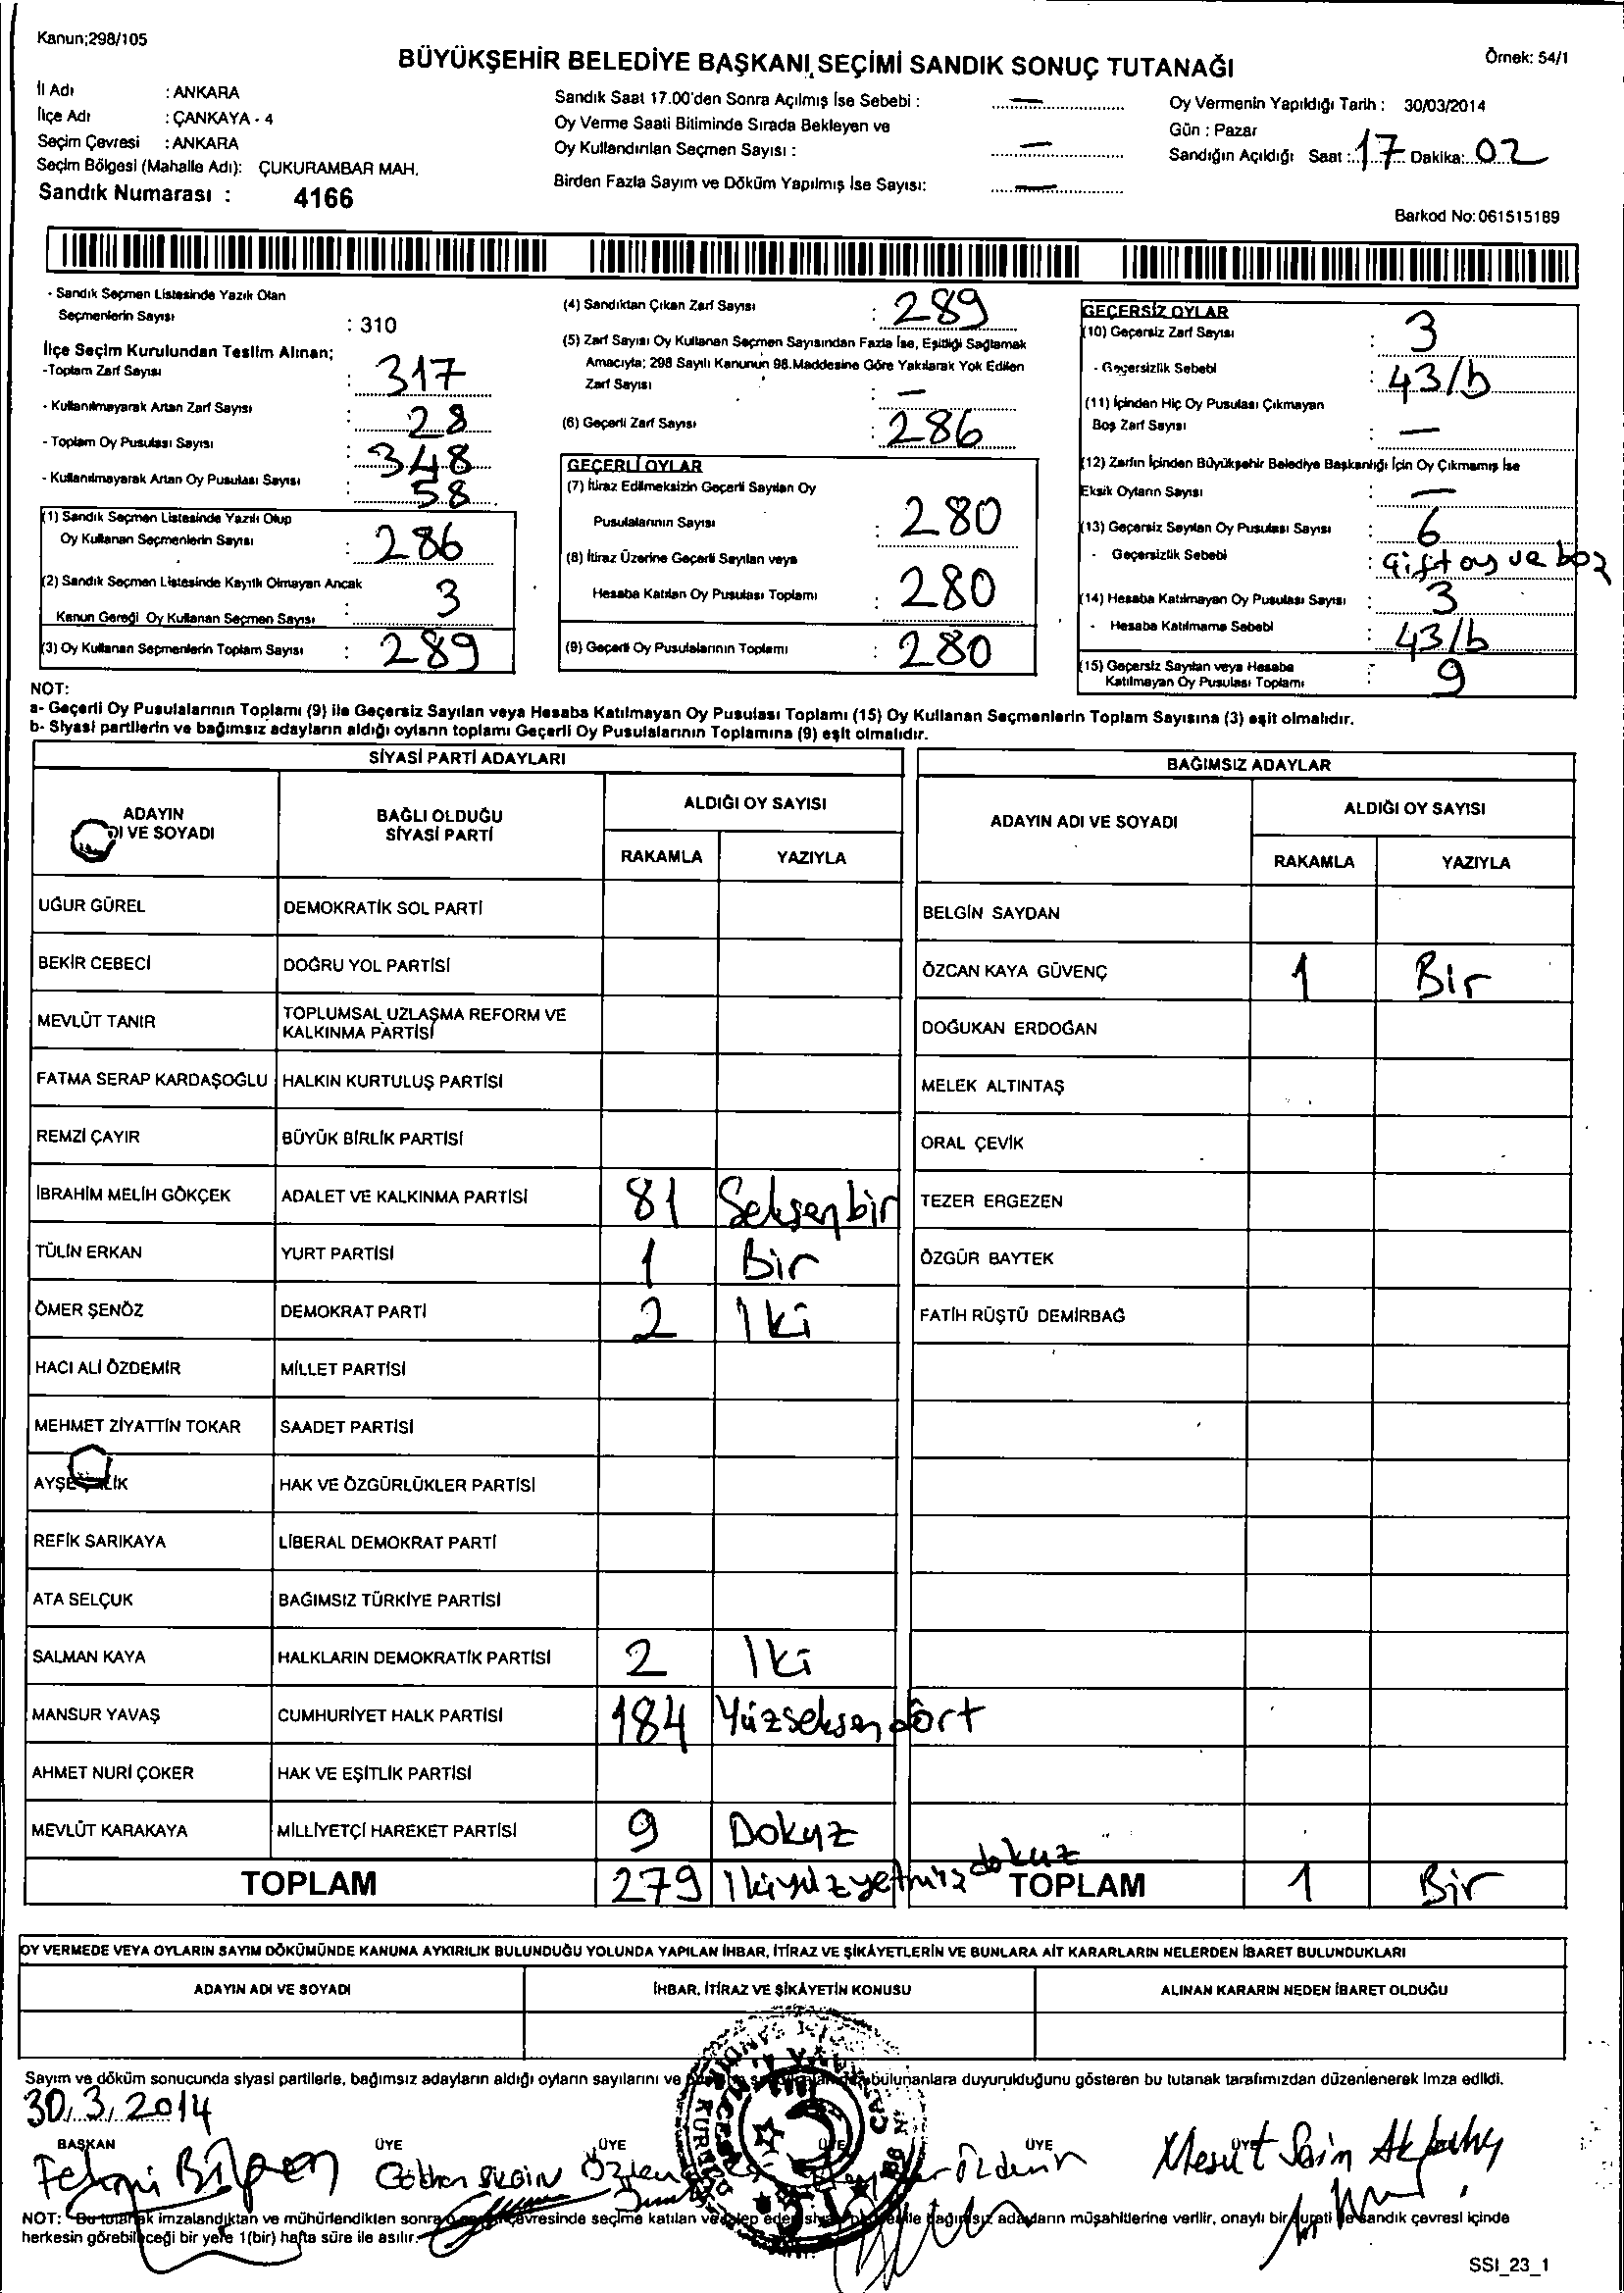 Kanun;298/105
BÜYÜKŞEHİR BELEDİYE BAŞKANI SEÇİMİ SANDIK SONUÇ TUTANAĞI
Örnek: 54/1
İl Adı : ANKARA
İlçe Adı : ÇANKAYA - 4
Seçim Çevresi : ANKARA
Seçim Bölgesi (Mahalle Adı): ÇUKURAMBAR MAH.
Sandık Numarası : 4166
Sandık Saat 17.00'den Sonra Açılmış İse Sebebi : —
Oy Verme Saati Bitiminde Sırada Bekleyen ve
Oy Kullandırılan Seçmen Sayısı : —
Birden Fazla Sayım ve Döküm Yapılmış İse Sayısı: —
Oy Vermenin Yapıldığı Tarih : 30/03/2014
Gün : Pazar
Sandığın Açıldığı Saat : 17 Dakika: 02
Barkod No: 061515189
- Sandık Seçmen Listesinde Yazılı Olan
Seçmenlerin Sayısı : 310
İlçe Seçim Kurulundan Teslim Alınan;
-Toplam Zarf Sayısı : 317
- Kullanılmayarak Artan Zarf Sayısı : 28
- Toplam Oy Pusulası Sayısı : 348
- Kullanılmayarak Artan Oy Pusulası Sayısı : 58
(1) Sandık Seçmen Listesinde Yazılı Olup
Oy Kullanan Seçmenlerin Sayısı : 286
(2) Sandık Seçmen Listesinde Kayıtlı Olmayan Ancak
Kanun Gereği Oy Kullanan Seçmen Sayısı : 3
(3) Oy Kullanan Seçmenlerin Toplam Sayısı : 289
(4) Sandıktan Çıkan Zarf Sayısı : 289
(5) Zarf Sayısı Oy Kullanan Seçmen Sayısından Fazla İse, Eşitliği Sağlamak
Amacıyla; 298 Sayılı Kanunun 98.Maddesine Göre Yakılarak Yok Edilen
Zarf Sayısı : —
(6) Geçerli Zarf Sayısı : 286
GEÇERLİ OYLAR
(7) İtiraz Edilmeksizin Geçerli Sayılan Oy
Pusulalarının Sayısı : 280
(8) İtiraz Üzerine Geçerli Sayılan veya
Hesaba Katılan Oy Pusulası Toplamı : 280
(9) Geçerli Oy Pusulalarının Toplamı : 280
GEÇERSİZ OYLAR
(10) Geçersiz Zarf Sayısı : 3
- Geçersizlik Sebebi : 43/b
(11) İçinden Hiç Oy Pusulası Çıkmayan
Boş Zarf Sayısı : —
(12) Zarfın İçinden Büyükşehir Belediye Başkanlığı İçin Oy Çıkmamış İse
Eksik Oyların Sayısı : —
(13) Geçersiz Sayılan Oy Pusulası Sayısı : 6
- Geçersizlik Sebebi : Çift oy ve boz
(14) Hesaba Katılmayan Oy Pusulası Sayısı : 3
- Hesaba Katılmama Sebebi : 43/b
(15) Geçersiz Sayılan veya Hesaba
Katılmayan Oy Pusulası Toplamı : 9
NOT:
a- Geçerli Oy Pusulalarının Toplamı (9) ile Geçersiz Sayılan veya Hesaba Katılmayan Oy Pusulası Toplamı (15) Oy Kullanan Seçmenlerin Toplam Sayısına (3) eşit olmalıdır.
b- Siyasi partilerin ve bağımsız adayların aldığı oyların toplamı Geçerli Oy Pusulalarının Toplamına (9) eşit olmalıdır.
SİYASİ PARTİ ADAYLARI
ADAYIN DI VE SOYADI BAĞLI OLDUĞU SİYASİ PARTİ ALDIĞI OY SAYISI
RAKAMLA YAZIYLA
UĞUR GÜREL DEMOKRATİK SOL PARTİ
BEKİR CEBECİ DOĞRU YOL PARTİSİ
MEVLÜT TANIR TOPLUMSAL UZLAŞMA REFORM VE KALKINMA PARTİSİ
FATMA SERAP KARDAŞOĞLU HALKIN KURTULUŞ PARTİSİ
REMZİ ÇAYIR BÜYÜK BİRLİK PARTİSİ
İBRAHİM MELİH GÖKÇEK ADALET VE KALKINMA PARTİSİ 81 Seksenbir
TÜLİN ERKAN YURT PARTİSİ 1 Bir
ÖMER ŞENÖZ DEMOKRAT PARTİ 2 Iki
HACI ALİ ÖZDEMİR MİLLET PARTİSİ
MEHMET ZİYATTİN TOKAR SAADET PARTİSİ
AYŞE HAK VE ÖZGÜRLÜKLER PARTİSİ
REFİK SARIKAYA LİBERAL DEMOKRAT PARTİ
ATA SELÇUK BAĞIMSIZ TÜRKİYE PARTİSİ
SALMAN KAYA HALKLARIN DEMOKRATİK PARTİSİ 2 Iki
MANSUR YAVAŞ CUMHURİYET HALK PARTİSİ 184 Yüzseksendört
AHMET NURİ ÇOKER HAK VE EŞİTLİK PARTİSİ
MEVLÜT KARAKAYA MİLLİYETÇİ HAREKET PARTİSİ 9 Dokuz
TOPLAM 279 Ikiyüzyetmiş dokuz
BAĞIMSIZ ADAYLAR
ADAYIN ADI VE SOYADI ALDIĞI OY SAYISI
RAKAMLA YAZIYLA
BELGİN SAYDAN
ÖZCAN KAYA GÜVENÇ 1 Bir
DOĞUKAN ERDOĞAN
MELEK ALTINTAŞ
ORAL ÇEVİK
TEZER ERGEZEN
ÖZGÜR BAYTEK
FATİH RÜŞTÜ DEMİRBAĞ
TOPLAM 1 Bir
OY VERMEDE VEYA OYLARIN SAYIM DÖKÜMÜNDE KANUNA AYKIRILIK BULUNDUĞU YOLUNDA YAPILAN İHBAR, İTİRAZ VE ŞİKÂYETLERİN VE BUNLARA AİT KARARLARIN NELERDEN İBARET BULUNDUKLARI
ADAYIN ADI VE SOYADI İHBAR, İTİRAZ VE ŞİKÂYETİN KONUSU ALINAN KARARIN NEDEN İBARET OLDUĞU
Sayım ve döküm sonucunda siyasi partilerle, bağımsız adayların aldığı oyların sayılarını ve bulunanlara duyurulduğunu gösteren bu tutanak tarafımızdan düzenlenerek imza edildi.
30.3.2014
BAŞKAN ÜYE ÜYE ÜYE ÜYE ÜYE
Fehmi Bilgen Gökhan Özlem Özdemir Mesut
NOT: Bu tutanak imzalandıktan ve mühürlendikten sonra çevresinde seçime katılan ve talep eden ile bağımsız adayların müşahitlerine verilir, onaylı bir sureti de sandık çevresi içinde
herkesin görebileceği bir yere 1(bir) hafta süre ile asılır.
SSI_23_1